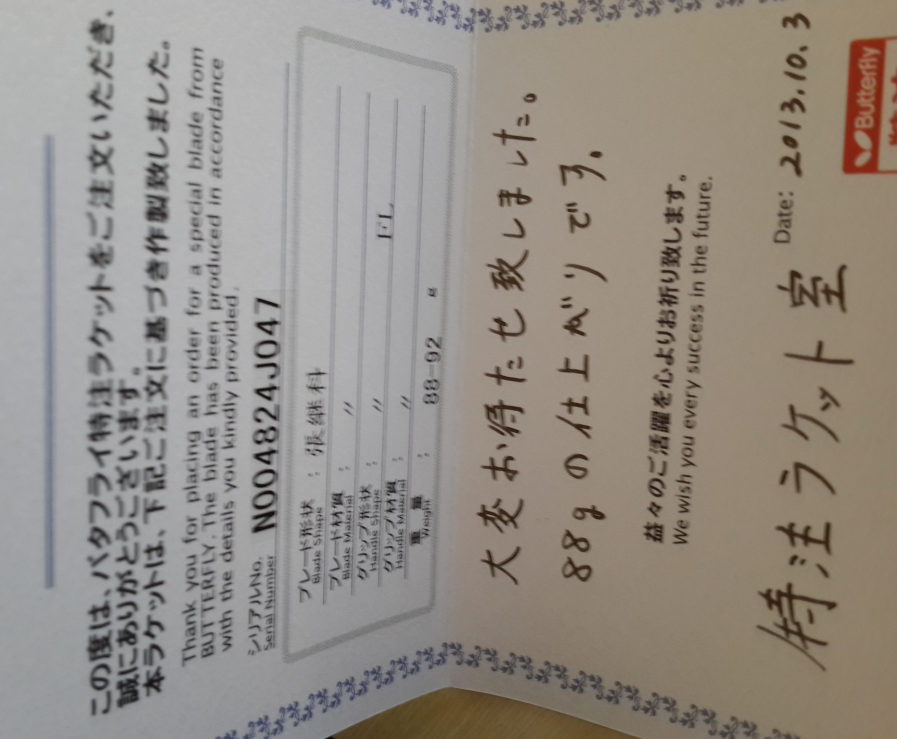 この度は、バタフライ特注ラケットをご注文いただき、
誠にありがとうございます。
本ラケットは、下記ご注文に基づき作製致しました。
Thank you for placing an order for a special blade from
BUTTERFLY. The blade has been produced in accordance
with the details you kindly provided.
シリアルNo.
Serial Number N004824J047
ブレード形状 : 張継科
Blade Shape
ブレード材質 : 〃
Blade Material
グリップ形状 : 〃 FL
Handle Shape
グリップ材質 : 〃
Handle Material
重量 : 88-92 g
Weight
大変お待たせ致しました。
88gの仕上がりです。
益々のご活躍を心よりお祈り致します。
We wish you every success in the future.
Date: 2013.10.3
特注ラケット室
Butterfly